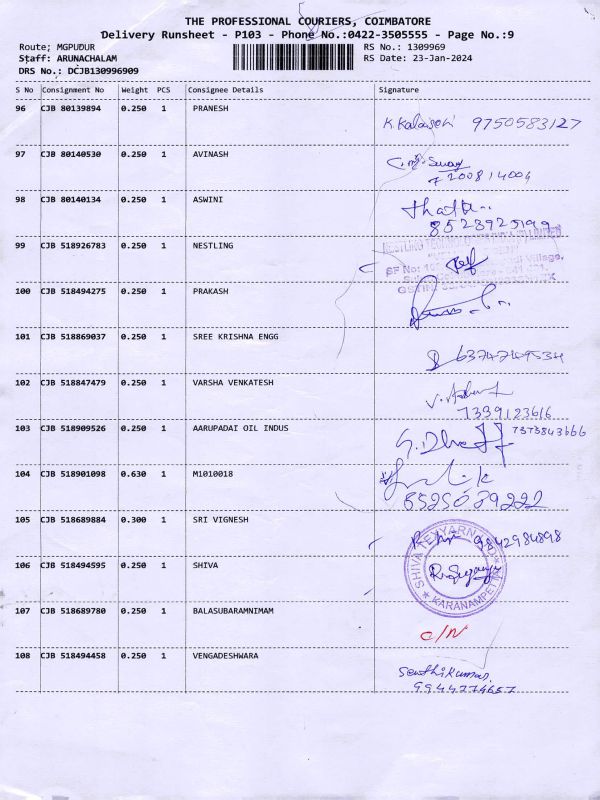 THE PROFESSIONAL COURIERS, COIMBATORE
Delivery Runsheet - P103 - Phone No.:0422-3505555 - Page No.:9
Route; MGPUDUR RS No.: 1309969
Staff: ARUNACHALAM RS Date: 23-Jan-2024
DRS No.: DCJB130996909
S No Consignment No Weight PCS Consignee Details Signature
96 CJB 80139894 0.250 1 PRANESH
9750583127
97 CJB 80140530 0.250 1 AVINASH
98 CJB 80140134 0.250 1 ASWINI
8523925199
99 CJB 518926783 0.250 1 NESTLING
100 CJB 518494275 0.250 1 PRAKASH
101 CJB 518869037 0.250 1 SREE KRISHNA ENGG
102 CJB 518847479 0.250 1 VARSHA VENKATESH
7339123616
103 CJB 518909526 0.250 1 AARUPADAI OIL INDUS 7373843666
104 CJB 518901098 0.630 1 M1010018
105 CJB 518689884 0.300 1 SRI VIGNESH
9842984898
106 CJB 518494595 0.250 1 SHIVA
KARANAMPET
107 CJB 518689780 0.250 1 BALASUBARAMNIMAM
C/N
108 CJB 518494458 0.250 1 VENGADESHWARA
Senthikumar.
9944274657